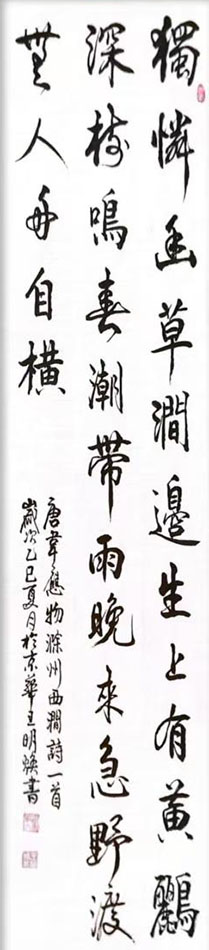 獨憐幽草澗邊生上有黃鸝
深樹鳴春潮帶雨晚來急野渡
無人舟自橫
唐韋應物滁州西澗詩一首
歲次乙巳夏月於京華王明煥書